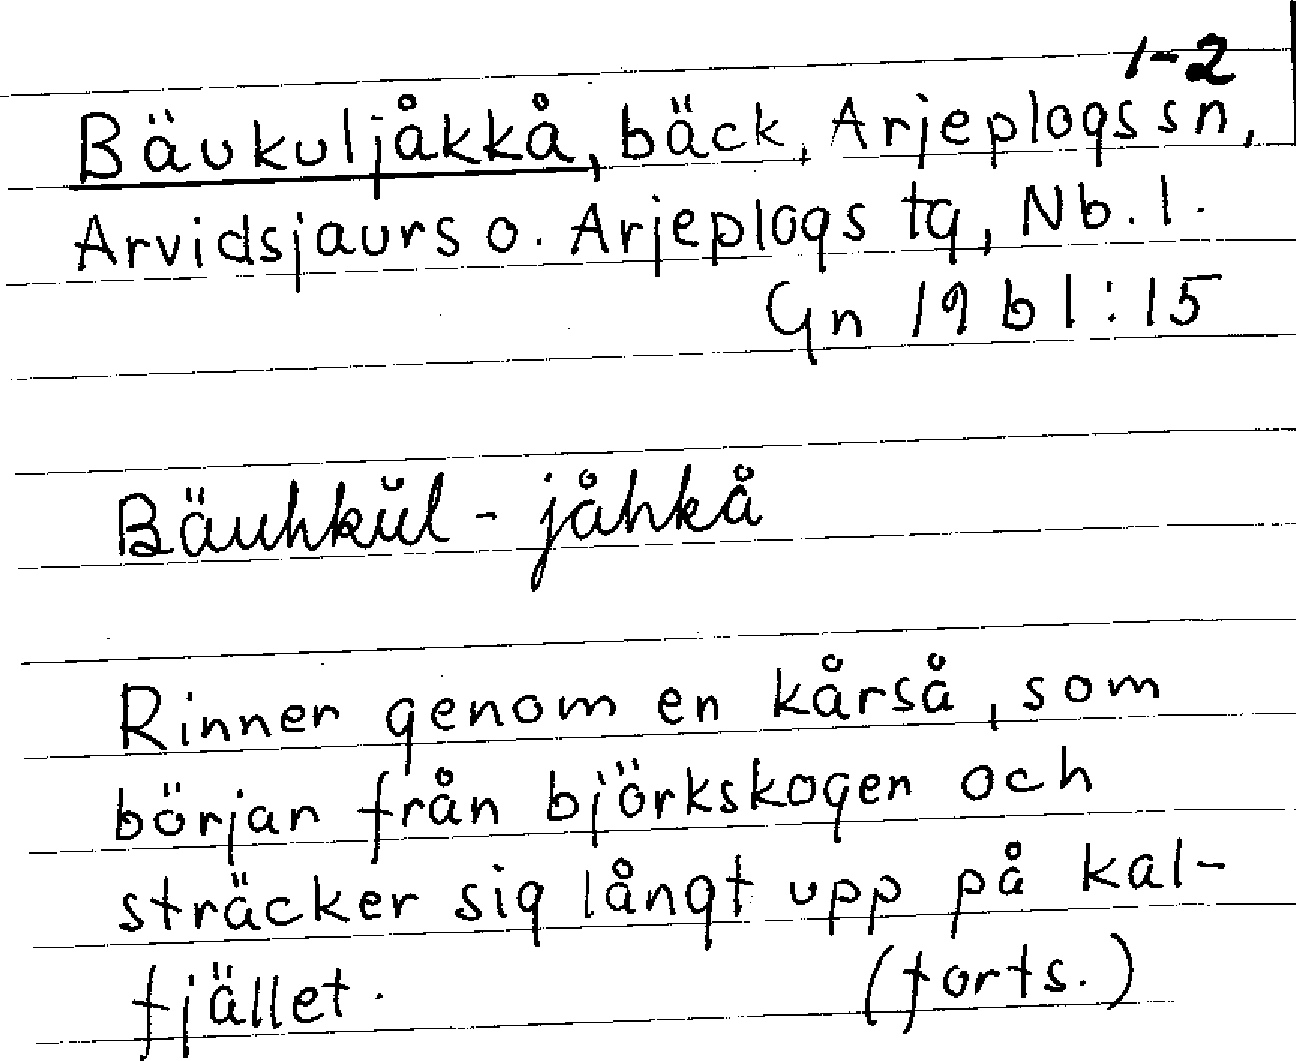 1-2
Bäukuljåkkå, bäck, Arjeplogs sn,
Arvidsjaurs o. Arjeplogs tg, Nb. l.
Gn 19 b 1:15
Bäuhkŭl - jåhkå
Rinner genom en kårså, som
börjar från björkskogen och
sträcker sig långt upp på kal-
fjället. (forts.)